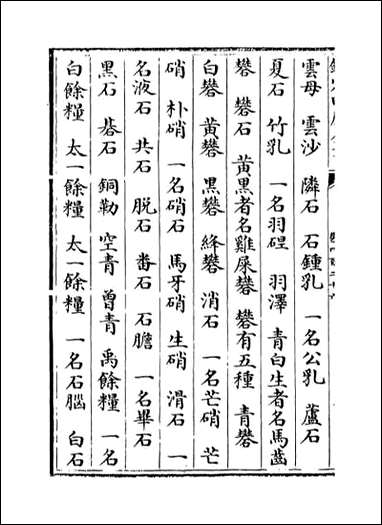 雲母　雲沙　隣石　石鍾乳　一名公乳　蘆石
夏石　竹乳　一名羽碮　羽澤　青白生者名馬齒
礬　礬石　黃黑者名雞屎礬　礬有五種　青礬
白礬　黃礬　黑礬　絳礬　消石　一名芒硝　芒
硝　朴硝　一名硝石　馬牙硝　生硝　滑石　一
名液石　共石　脫石　番石　石膽　一名畢石
黑石　碁石　銅勒　空青　曾青　禹餘糧　一名
白餘糧　太一餘糧　太一餘糧　一名石腦　白石